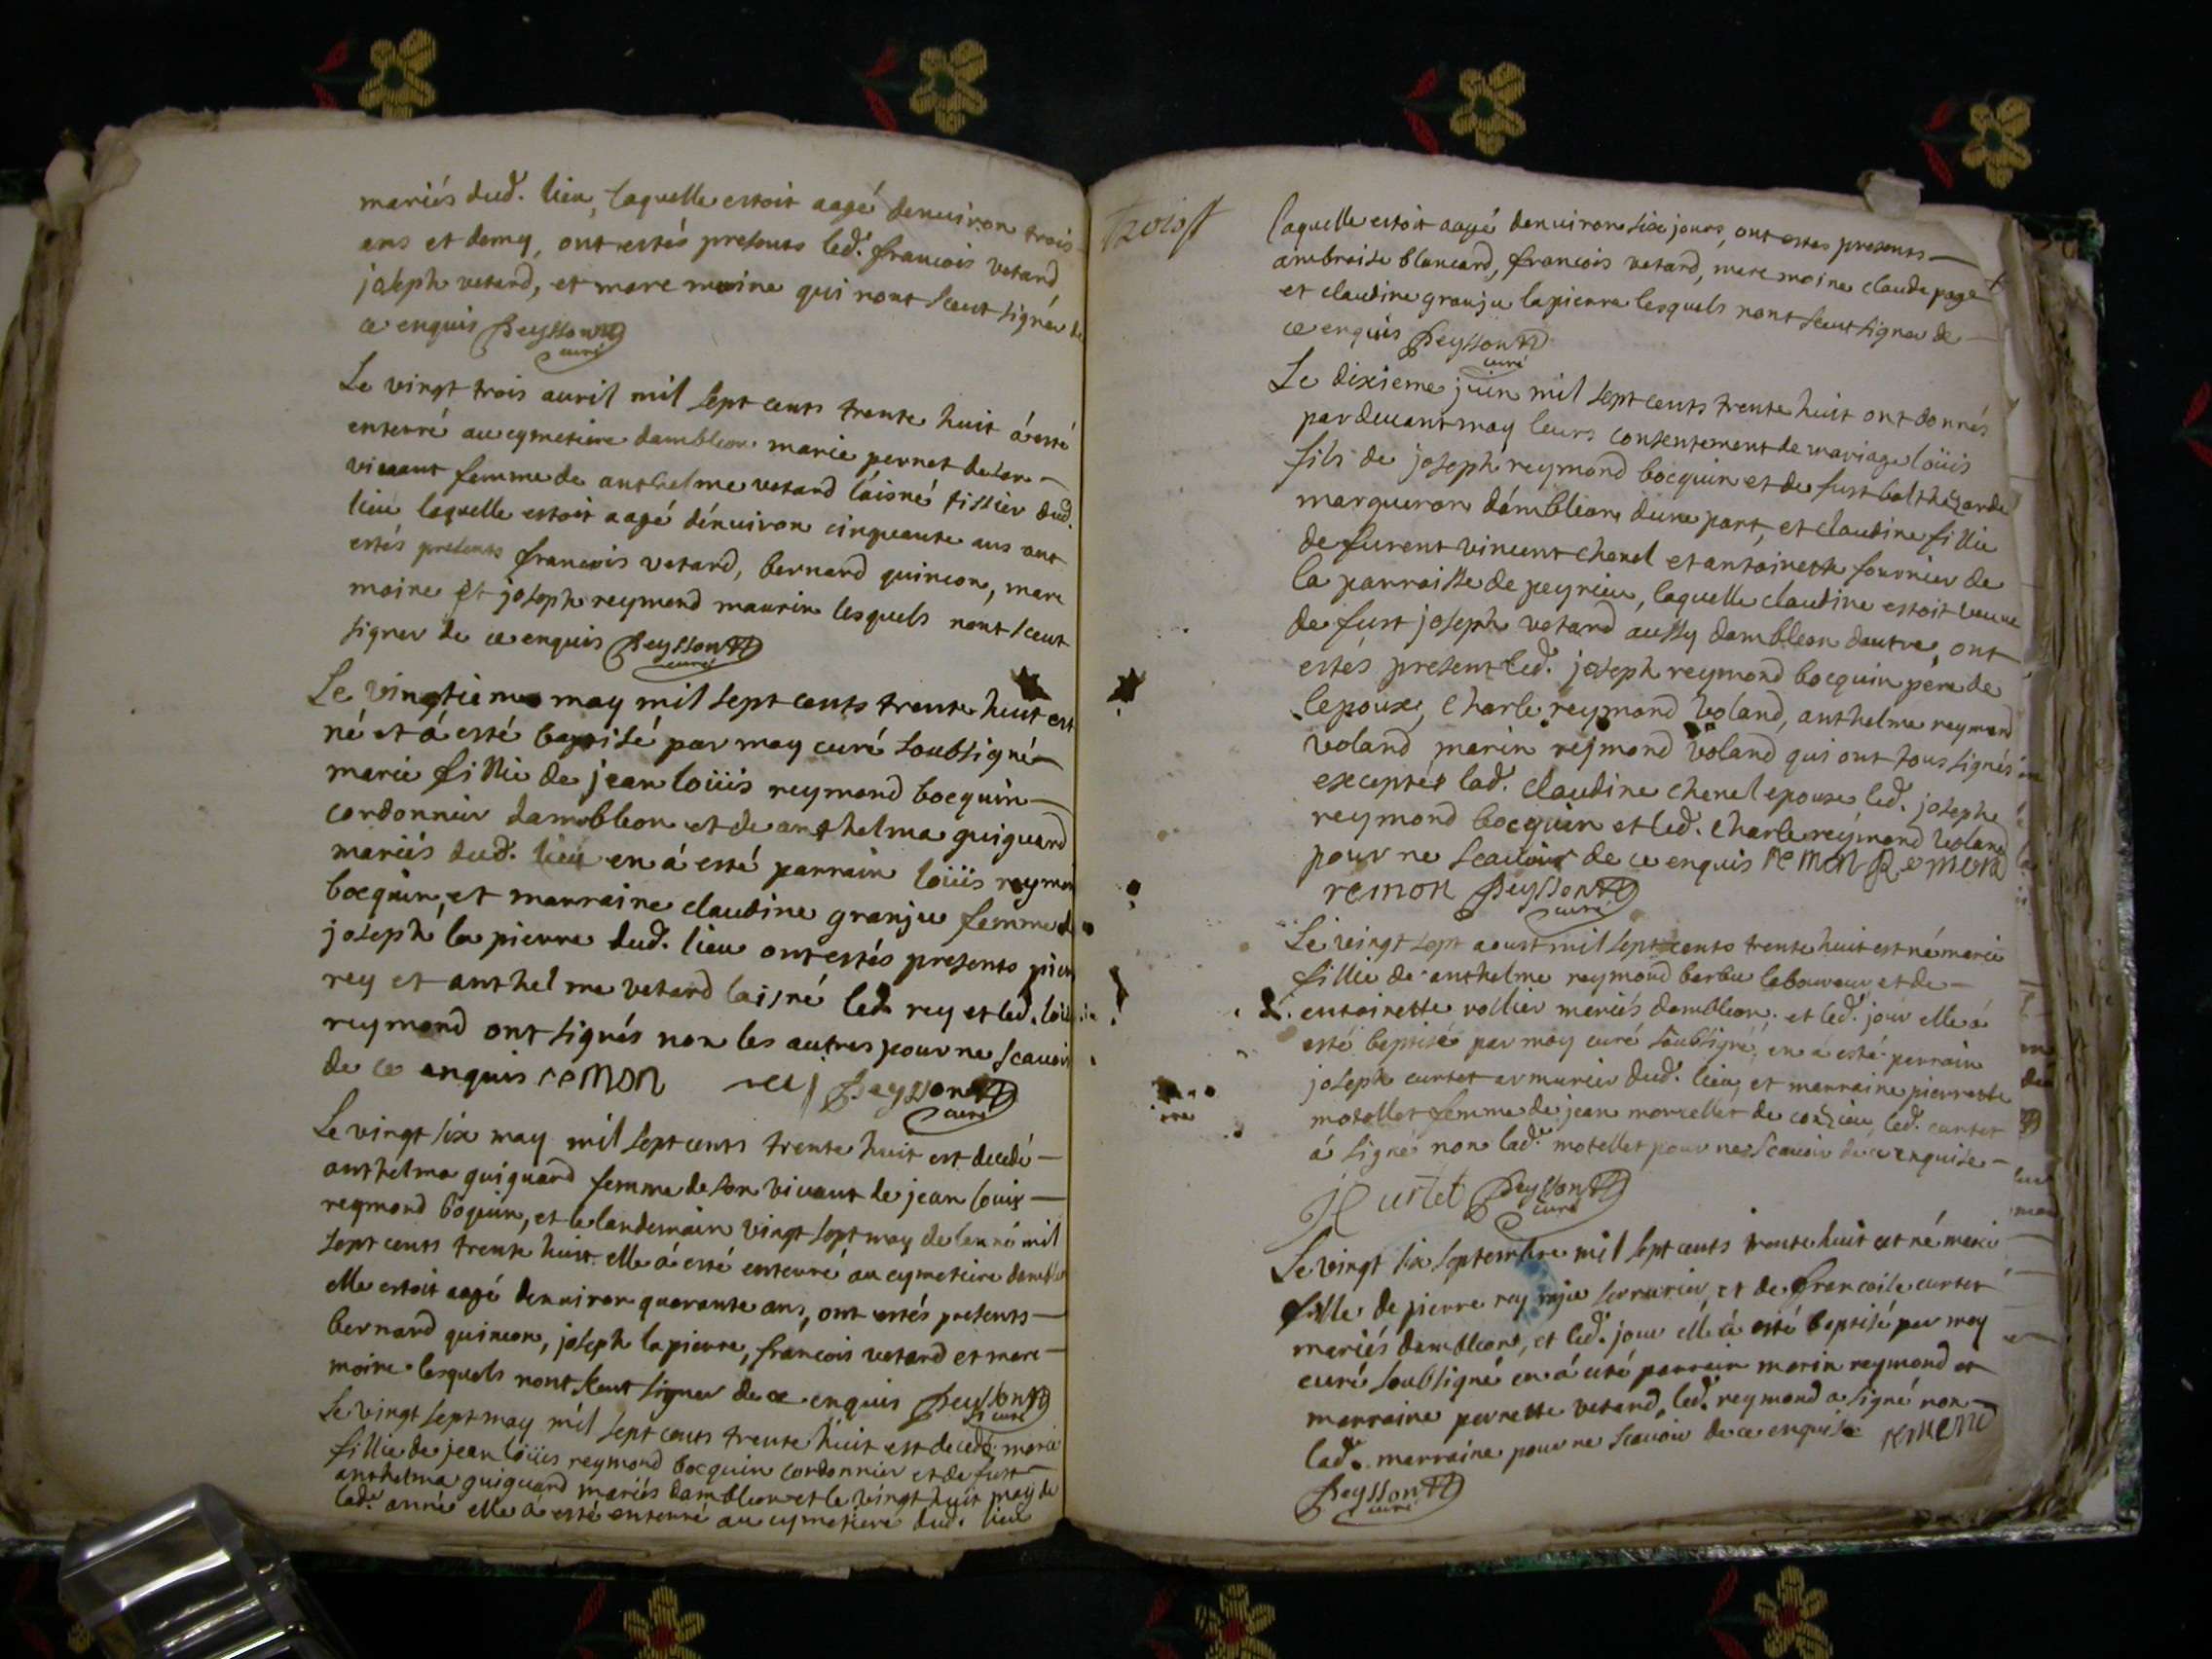 mariés dud. lieu, laquelle estoit aagé denuiron trois
ans et demy, ont estés presents led. francois vetard
joseph vetard, et marc moine qui nont sceut signer de
ce enquis Peysson
curé
Le vingt trois auril mil sept cents trente huit á esté
enterré au cymetiere dambleon marie pernet de son
viuant femme de anthelme vetard láisné tissier dud.
lieu laquelle estoit aagé dénuiron cinquante ans ont
estés presents francois vetard, bernard quincon, marc
moine et joseph reymond maurin lesquels nont sceut
signer de ce enquis Peysson
curé
Le vingtieme may mil sept cents trente huit est
né et á esté baptisé par moy curé soubsigné
marie fillie de jean loüis reymond bocquin
cordonnier dambleon et de anthelma guiguard
mariés dud. lieu en á esté parrain loüis reymon
bocquin, et marraine claudine granju femme d
joseph la pierre dud. lieu ont estés presents pier
rey et anthelme vetard laisné led. rey et led. loüi
reymond ont signés non les autres pour ne scauoir
de ce enquis remon rey Peysson
curé
Le vingt six may mil sept cents trente huit est decedé
anthelma guiguard femme de son viuant de jean louis
reymond boquin, et le landemain vingt sept may de lanné mil
sept cents trente huit elle á esté enterré au cymetiere damble
elle estoit aagé denuiron quarante ans, ont estés presents
bernard quincon, joseph lapierre, francois vetard et marc
moine lesquels nont sceut signer de ce enquis Peysson
curé
Le vingt sept may mil sept cents trente huit est decedé marie
fillie de jean loüis reymond bocquin cordonnier et de fust
anthelma guiguard mariés dambleon et le vingt huit may de
lad. anné elle á esté enterré au cymetiere dud. lieu
Trois
laquelle estoit aagé denuiron six jours, ont estes presents
ambroise blancard, francois vetard, marc moine claude page
et claudine granju lapierre lesquels nont sceut signer de
ce enquis Peysson
curé
Le dixieme juin mil sept cents trente huit ont donnés
par deuant moy leurs consentement de mariage loüis
fils de joseph reymond bocquin et de fust balthezarde
marqueron dámbleon dune part, et claudine fillie
de furent vincent chenel et antoinette fournier de
la parroisse de peyrieu, laquelle claudine estoit veuue
de fust joseph vetard aussy dambleon dautre, ont
estés present led. joseph reymond bocquin pere de
lepoux, charle reymond voland, anthelme reymond
voland marin rejmond voland qui ont tous signés
exceptés lad. claudine chenel epouse led. joseph
reymond bocquin et led. charle reymond voland
pour ne scauoir de ce enquis remon Remon
remon Peysson
curé
Le vingt sept aoust mil sept cents trente huit est né marie
fillie de anthelme reymond barbu laboureur et de
antoinette rollier mariés dambleon. et led. jour elle á
esté baptisé par moy curé soubsigné, en á esté parrain
joseph curtet armurier dud. lieu, et marraine pierrette
motollet femme de jean marcellet de conzieu, led. curtet
á signé non lad. motellet pour ne scauoir de ce enquise
J Curtet Peysson
curé
Le vingt six septembre mil sept cents trente huit est né marie
fille de pierre rey serrurier, et de francoise curtet
mariés dambleon, et led. jour elle á esté baptisé par moy
curé soubsigné en á esté parrain marin reymond et
marraine perrette vetard, led. reymond a signé non
lad. marraine pour ne scauoir de ce enquise remond
Peysson
curé